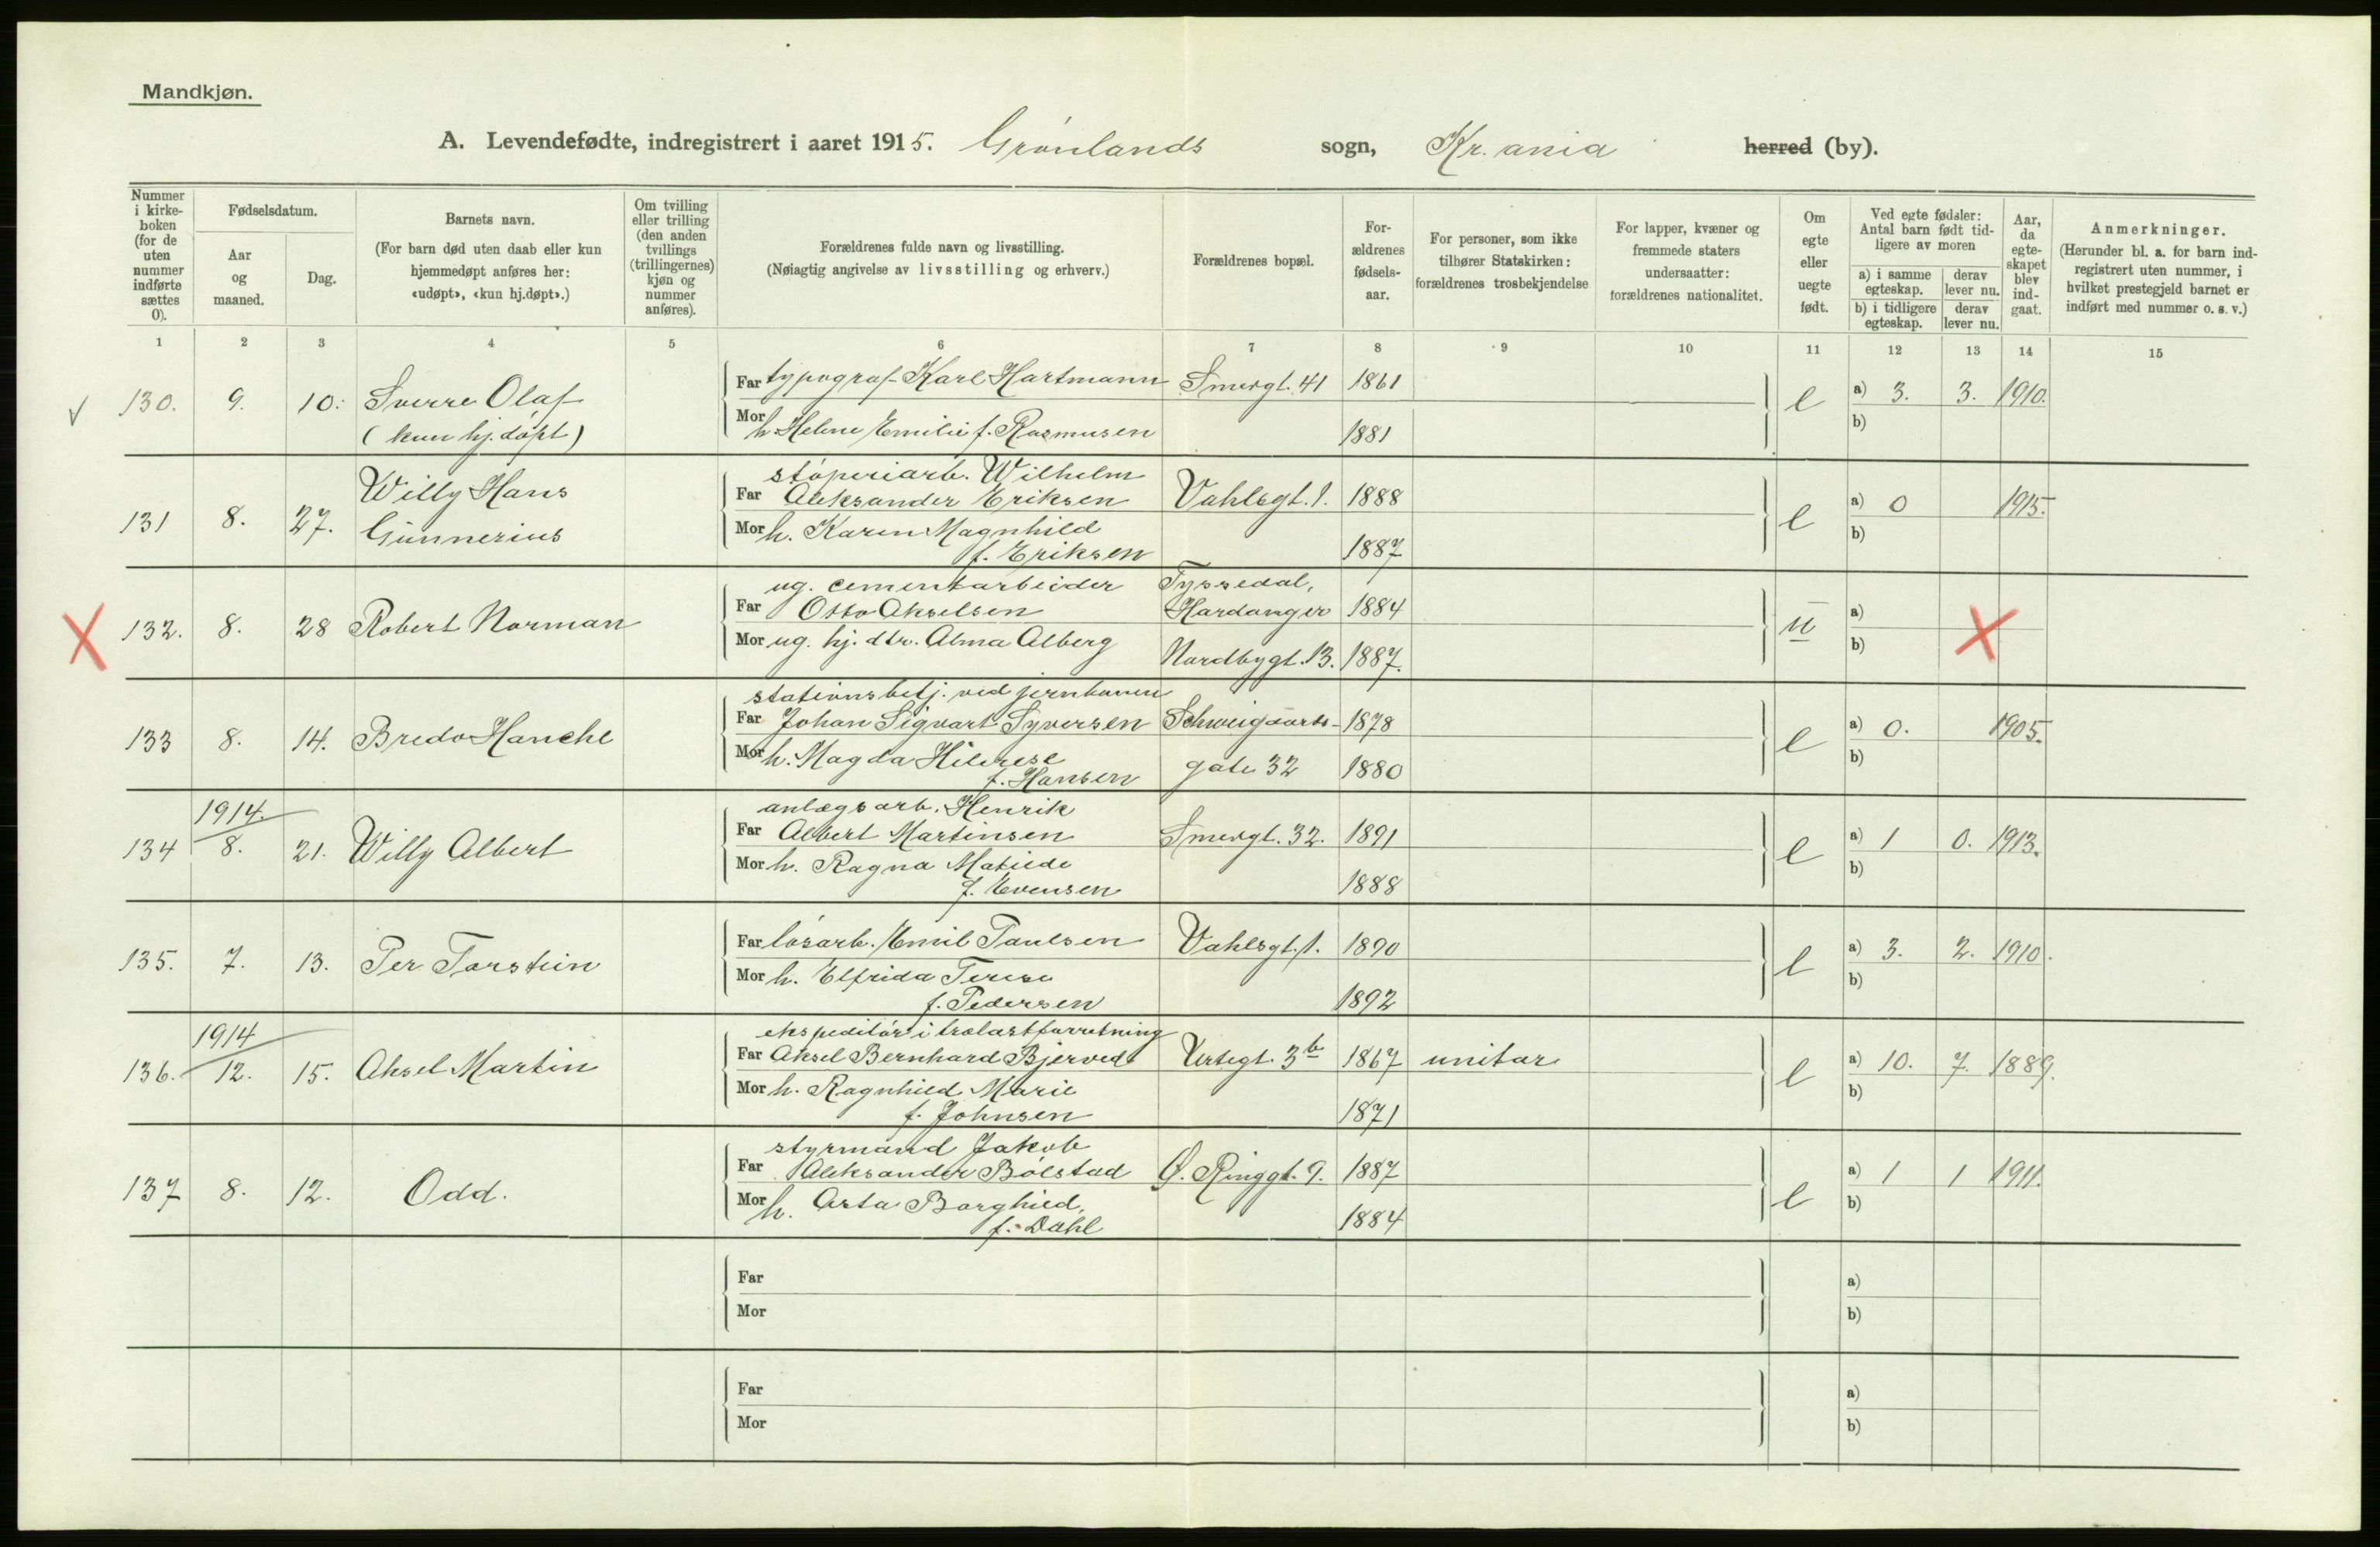 Mandkjøn.
A. Levendefødte, indregistrert i aaret 1915. Grønlands sogn, Kr.ania herred (by).
Nummer i kirke-boken (for de uten nummer indførte sættes 0).
Fødselsdatum.
Aar og maaned.
Dag.
Barnets navn.
(For barn død uten daab eller kun hjemmedøpt anføres her: «udøpt», «kun hj.døpt».)
Om tvilling eller trilling (den anden tvillings (trillingernes) kjøn og nummer anføres).
Forældrenes fulde navn og livsstilling.
(Nøiagtig angivelse av livsstilling og erhverv.)
Forældrenes bopæl.
For-ældrenes fødsels-aar.
For personer, som ikke tilhører Statskirken: forældrenes trosbekjendelse
For lapper, kvæner og fremmede staters undersaatter: forældrenes nationalitet.
Om egte eller uegte født.
Ved egte fødsler: Antal barn født tid-ligere av moren
a) i samme egteskap.
derav lever nu.
b) i tidligere egteskap.
derav lever nu.
Aar, da egte-skapet blev ind-gaat.
Anmerkninger.
(Herunder bl. a. for barn ind-registrert uten nummer, i hvilket prestegjeld barnet er indført med nummer o. s. v.)
1 2 3 4 5 6 7 8 9 10 11 12 13 14 15
130. 9. 10. Sverre Olaf Far typograf Karl Hartmann Smergt. 41 1861 e a) 3. 3. 1910.
(kun hj.døpt) Mor h. Helene Emilie f. Rasmusen 1881 b)
støperiarb. Wilhelm
131 8. 27. Willy Hans Far Aleksander Eriksen Vahlsgt. 1. 1888 e a) 0 1915.
Gunnerius Mor h. Karen Magnhild b)
f. Eriksen 1887
ug. cementarbeider Tyssedal,
132. 8. 28 Robert Norman Far Otto Akselsen Hardanger 1884 u a)
Mor ug. hj. dtr. Alma Alberg Nordbygt. 13. 1887. b)
stationsbetj. ved jernbanen
133 8. 14. Bredo Hanche Far Johan Sigvart Syversen Schweigaards- 1878 e a) 0. 1905.
Mor h. Magda b)
f. Hansen gate 32 1880
1914. anlægsarb. Henrik
134 8. 21. Willy Albert Far Albert Martinsen Smergt. 32. 1891 e a) 1 0. 1913.
Mor h. Ragna Matilde b)
f. Evensen 1888
135. 7. 13. Per Torstein Far løsarb. Emil Paulsen Vahlsgt. 1. 1890 e a) 3. 2. 1910.
Mor h. Elfrida Terese b)
f. Pedersen 1892
1914 ekspeditør i trælastforretning
136. 12. 15. Aksel Martin Far Aksel Bernhard Bjerved Urtegt. 3b 1867 unitar e a) 10. 7. 1889.
Mor h. Ragnhild Marie b)
f. Johnsen 1871
styrmand Jakob
137 8. 12. Odd. Far Aleksander Bølstad Ø. Ringgt. 9. 1887 e a) 1 1 1911.
Mor h. Asta Borghild, b)
f. Dahl 1884
Far a)
Mor b)
Far a)
Mor b)